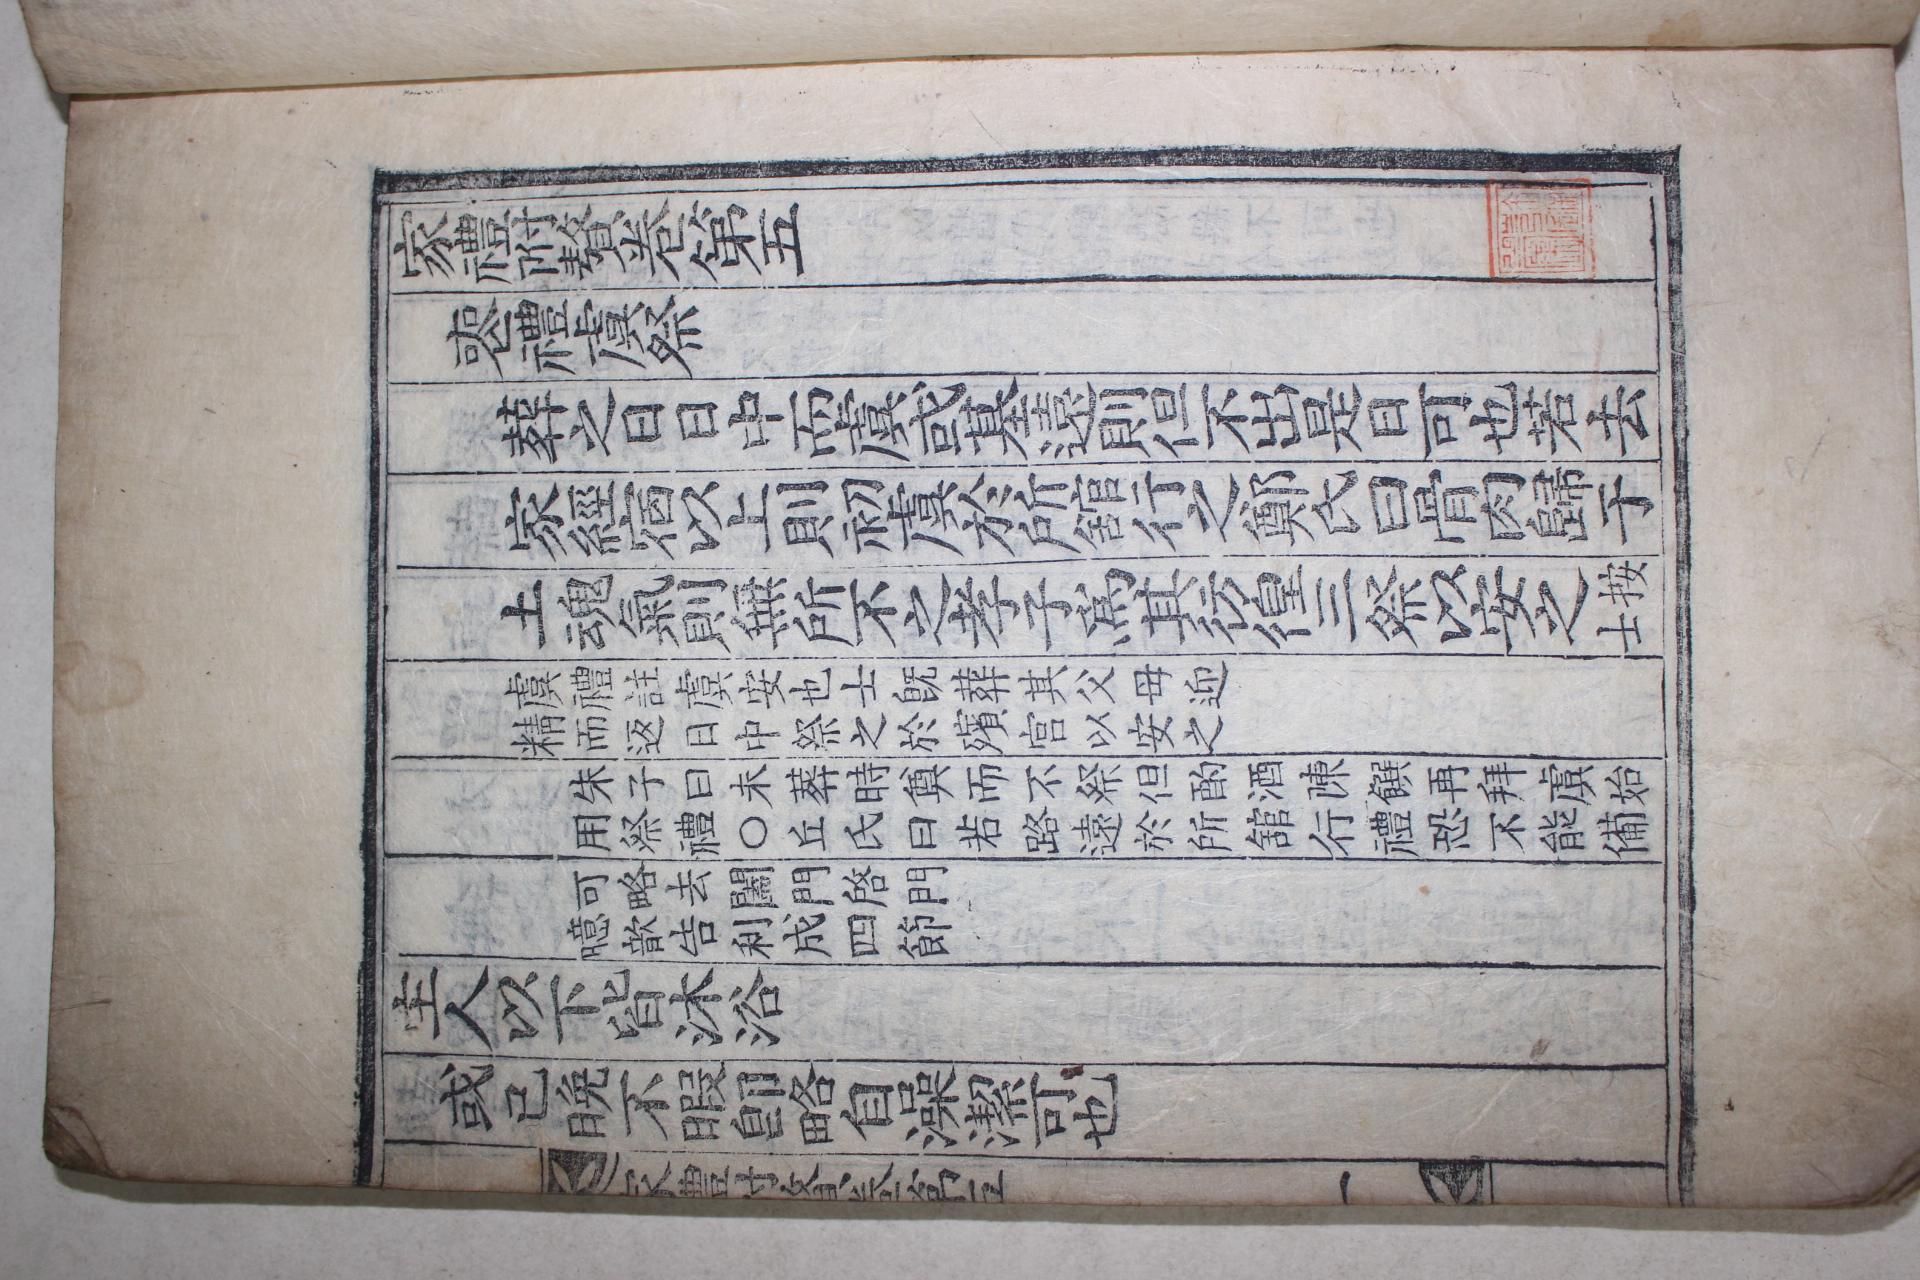 家禮附贅卷第五
喪禮虞祭
葬之日日中而虞或墓遠則但不出是日可也若去
家經宿以上則初虞於所舘行之鄭氏曰骨肉歸于
土魂氣則無所不之孝子爲其彷徨三祭以安之
按
士
虞禮註虞安也士旣葬其父母迎
精而返日中祭之於殯宮以安之
朱子曰未葬時奠而不祭但酌酒陳饌再拜虞始
用祭禮○丘氏曰若路遠於所舘行禮恐不能備
可略去闔門啓門
噫歆告利成四節
主人以下皆沐浴
或已晩不暇卽略自澡潔可也
家禮附贅卷第五
一